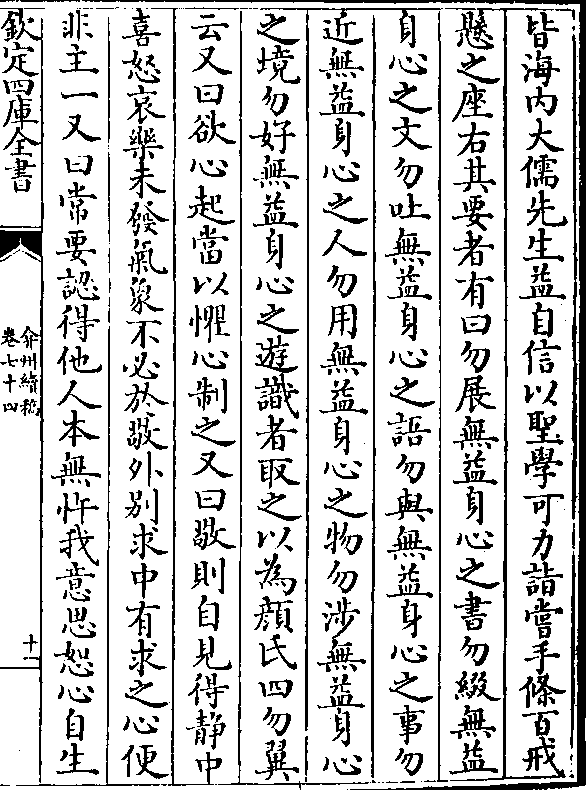 皆海内大儒先生益自信以聖學可力詣嘗手條百戒
懸之座右其要者有曰勿展無益身心之書勿綴無益
身心之文勿吐無益身心之語勿與無益身心之事勿
近無益身心之人勿用無益身心之物勿涉無益身心
之境勿好無益身心之遊識者取之以為顔氏四勿翼
云又曰欲心起當以懼心制之又曰敬則自見得静中
喜怒哀樂未發氣象不必於敬外别求中有求之心便
非主一又曰常要認得他人本無忤我意思恕心自生
欽定四庫全書
弇州續稿
卷七十四
十一